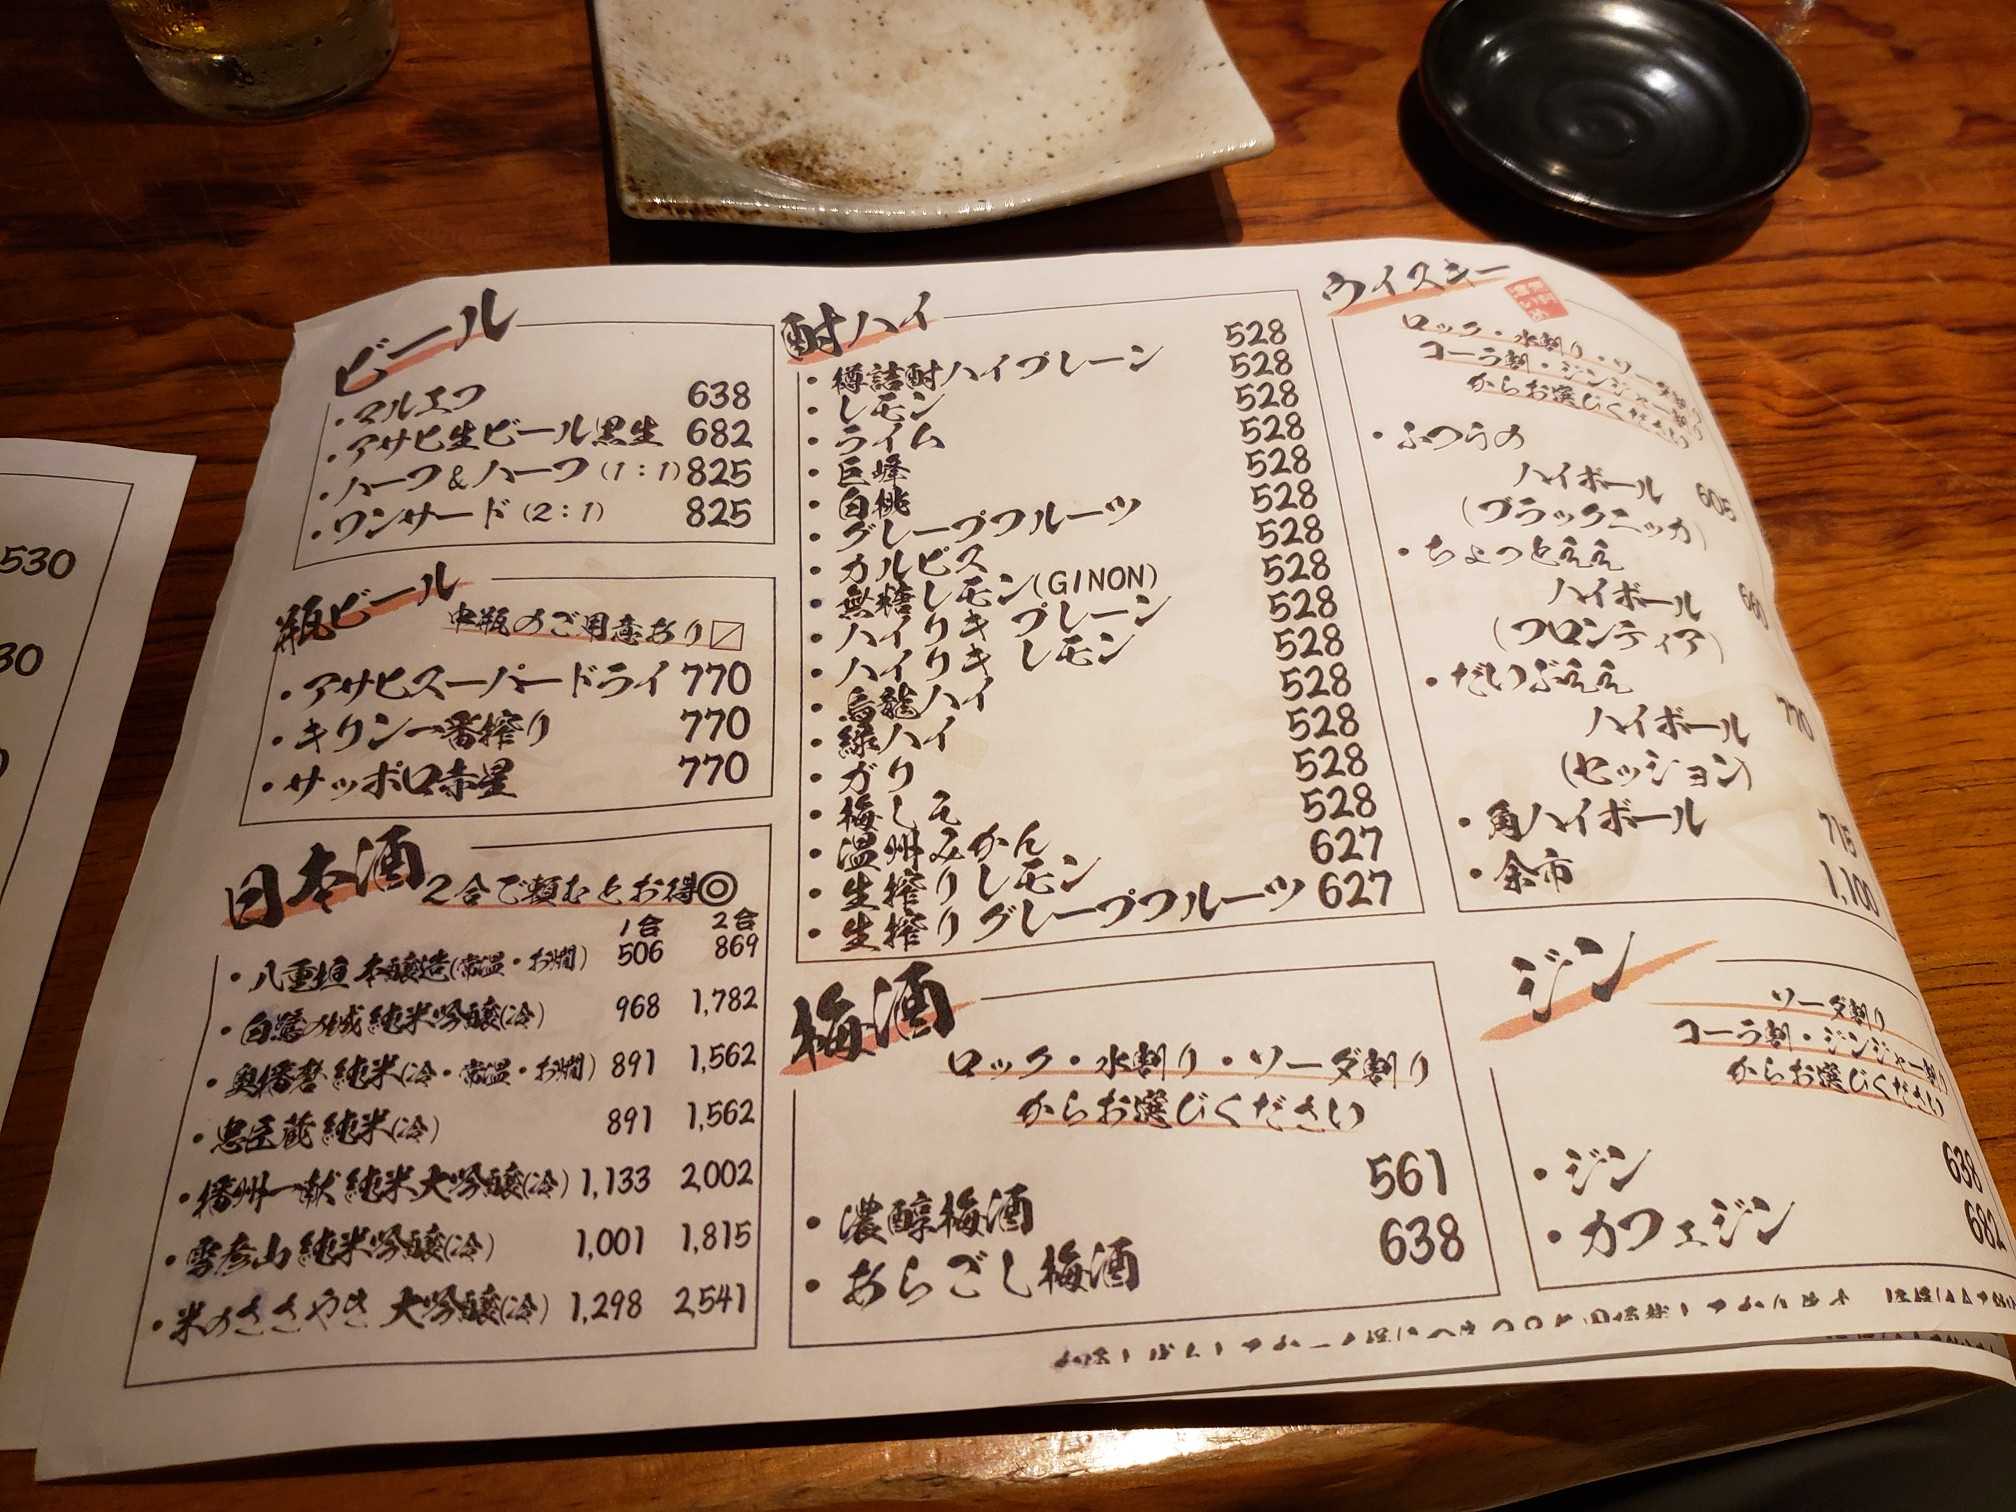 ビール
・マルエフ 638
・アサヒ生ビール黒生 682
・ハーフ&ハーフ(1:1) 825
・ワンサード(2:1) 825
瓶ビール
中瓶のご用意あり
・アサヒスーパードライ 770
・キリン一番搾り 770
・サッポロ赤星 770
日本酒
2合で頼むとお得◎
1合 2合
・八重垣 本醸造(常温・お燗) 506 869
・白鷺の城 純米吟醸(冷) 968 1,782
・奥播磨 純米(冷・常温・お燗) 891 1,562
・忠臣蔵 純米(冷) 891 1,562
・播州一献 純米大吟醸(冷) 1,133 2,002
・雪彦山 純米吟醸(冷) 1,001 1,815
・米のささやき 大吟醸(冷) 1,298 2,541
酎ハイ
・樽詰酎ハイプレーン 528
・レモン 528
・ライム 528
・巨峰 528
・白桃 528
・グレープフルーツ 528
・カルピス 528
・無糖レモン(GINON) 528
・ハイリキ プレーン 528
・ハイリキ レモン 528
・烏龍ハイ 528
・緑ハイ 528
・ガリ 528
・梅しそ 528
・温州みかん 528
・生搾りレモン 627
・生搾りグレープフルーツ 627
梅酒
ロック・水割り・ソーダ割り
からお選びください
・濃醇梅酒 561
・あらごし梅酒 638
ウイスキー
ロック・水割り・ソーダ割り
コーラ割・ジンジャー割り
からお選びください
・ふつうの
ハイボール 605
(ブラックニッカ)
・ちょっとええ
ハイボール 660
(フロンティア)
・だいぶええ
ハイボール 770
(セッション)
・角ハイボール 715
・余市 1,100
ジン
ソーダ割り
コーラ割・ジンジャー割り
からお選びください
・ジン 638
・カフェジン 682
530
30